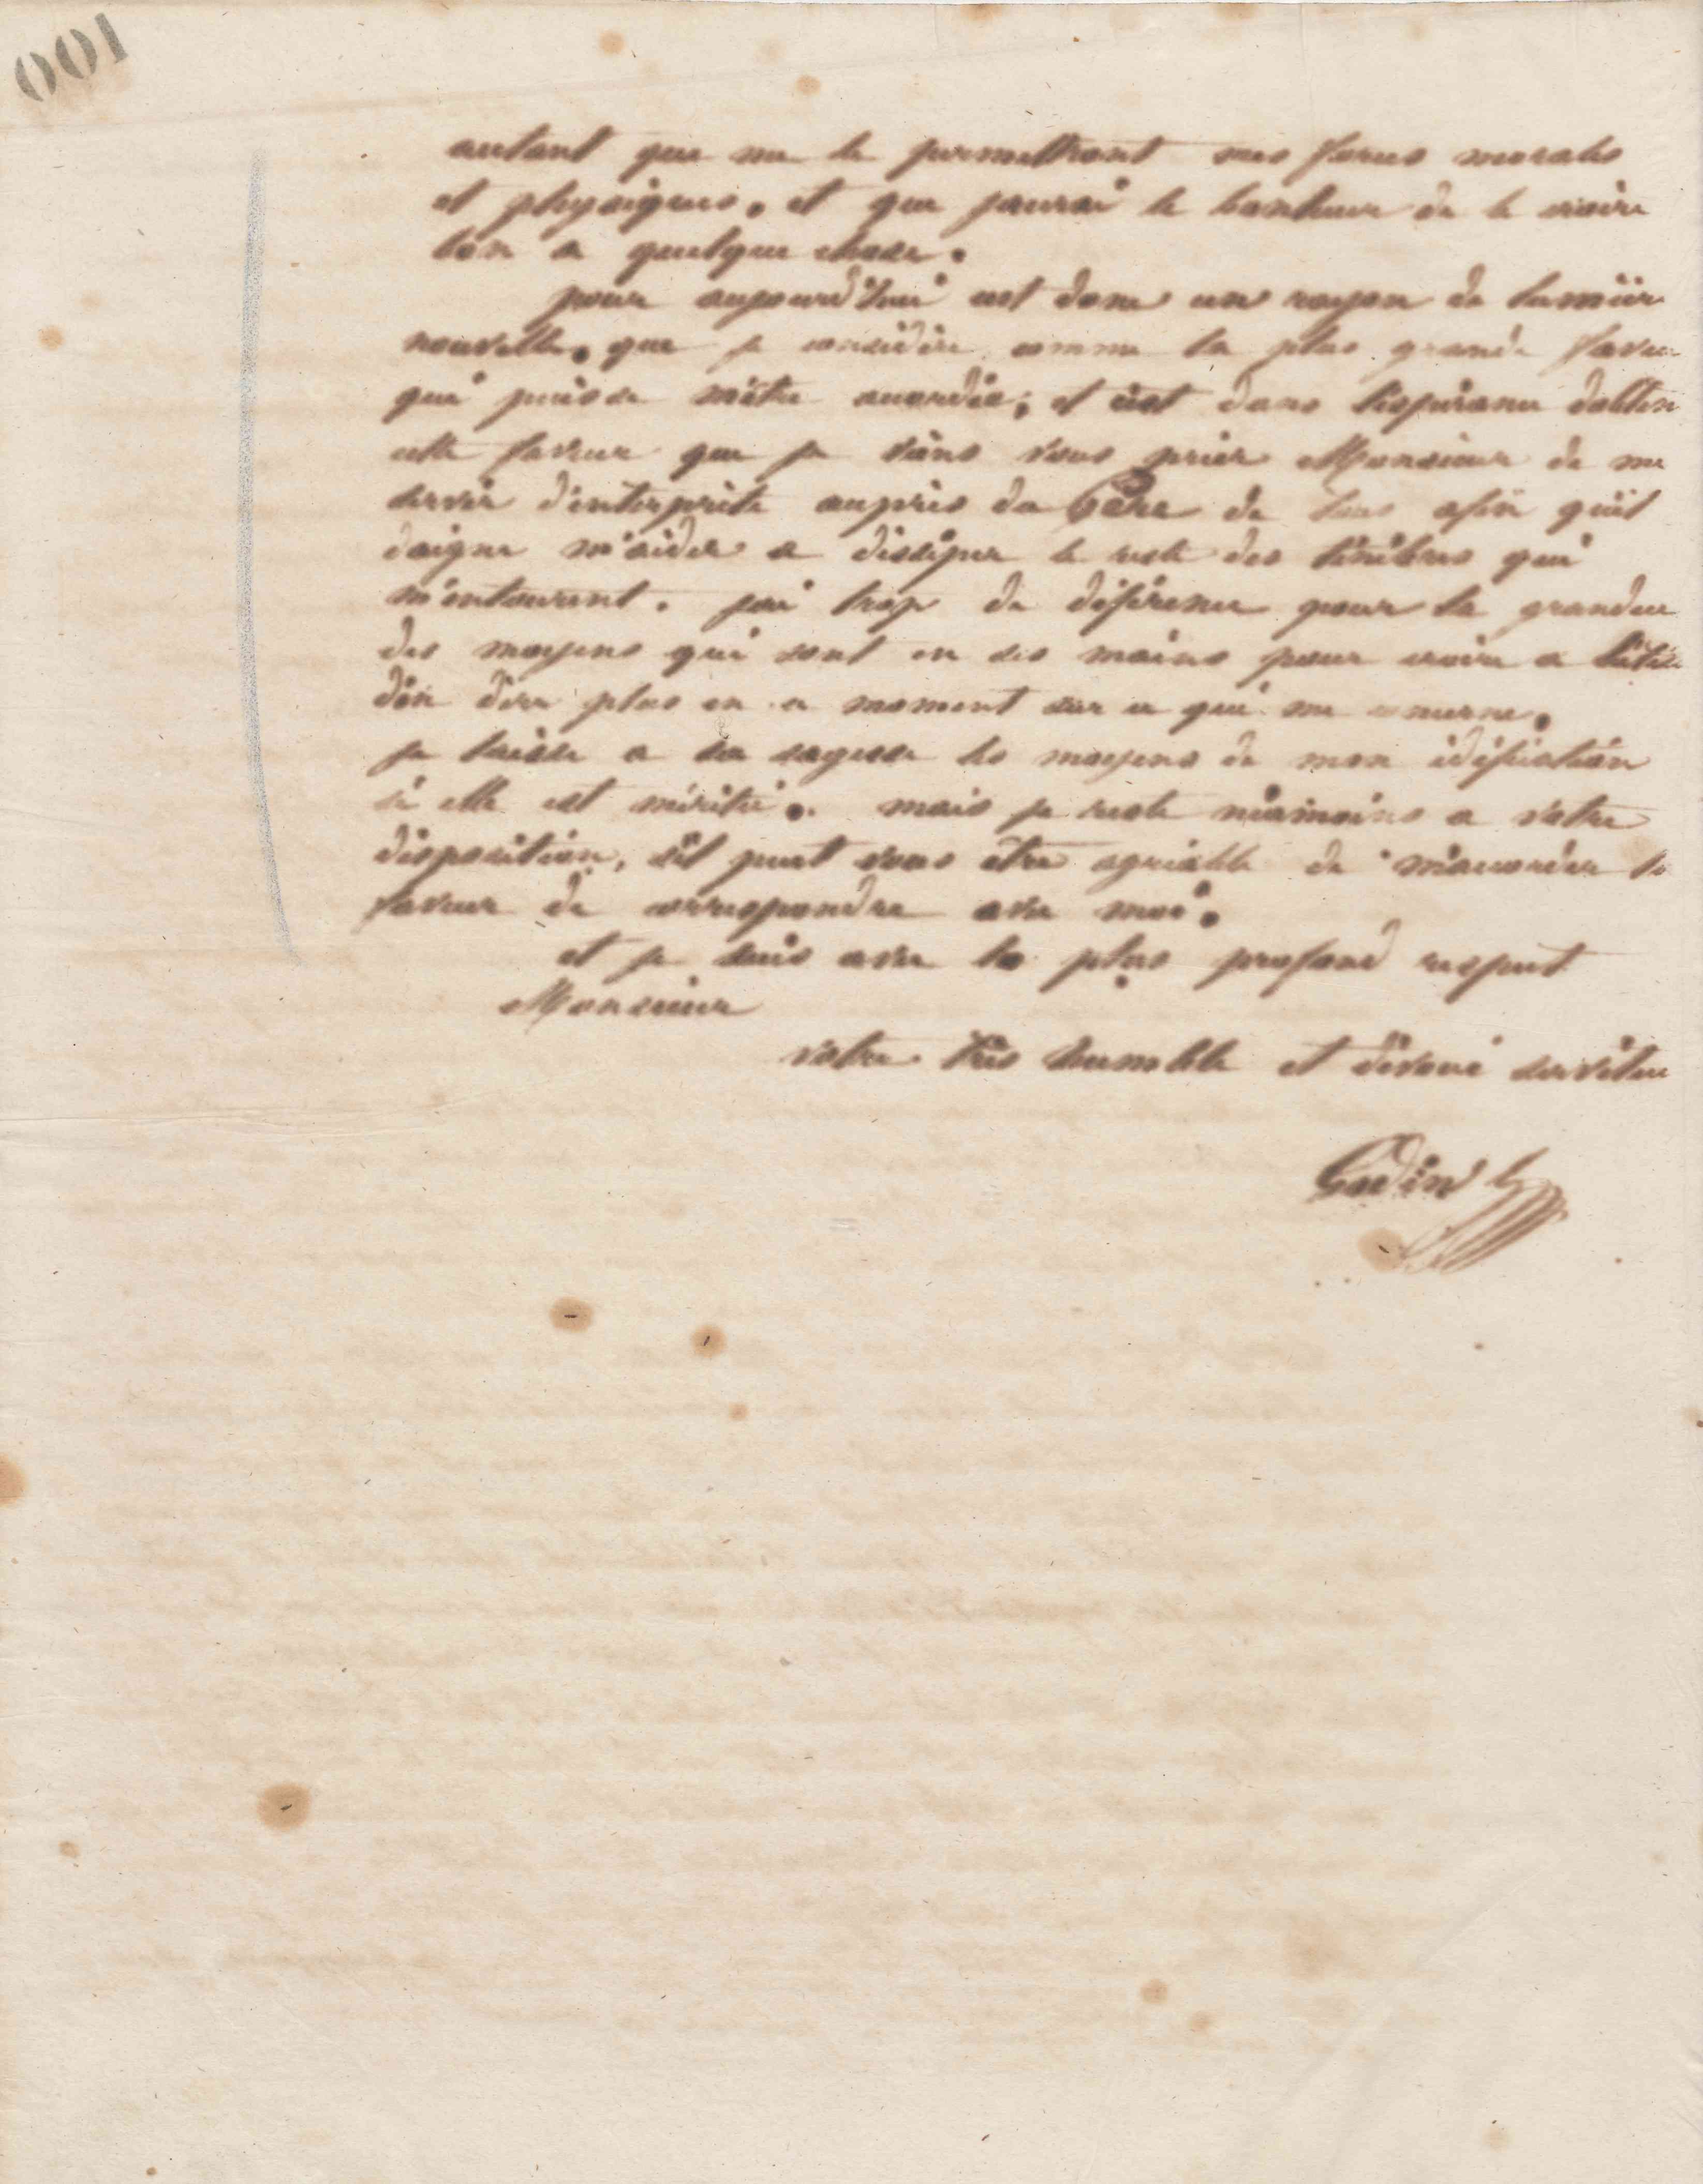 001
autant que me le permettront mes forces morales
et physiques. et que jaurai le bonheur de le croire
bon a quelque chose.
pour aujourd'hui cest donc un rayon de lumière
nouvelle. que je considère comme la plus grande faveur
qui puisse mêtre accordée; et cest dans lespérance dobtenir
cette faveur que je viens vous prier Monsieur de me
servir d'interprète auprès du Père de tous afin quil
daigne m'aider a dissiper le reste des ténèbres qui
m'entourent. jai trop de déférence pour la grandeur
des moyens qui sont en ses mains pour croire a
d'en dire plus en ce moment sur ce qui me concerne.
je laisse a sa sagesse les moyens de mon édification
si elle est méritée. mais je reste néanmoins a votre
disposition, sil peut vous être agréable de m'accorder la
faveur de correspondre avec moi.
et je suis avec le plus profond respect
Monsieur
votre très humble et dévoué serviteur
Godin